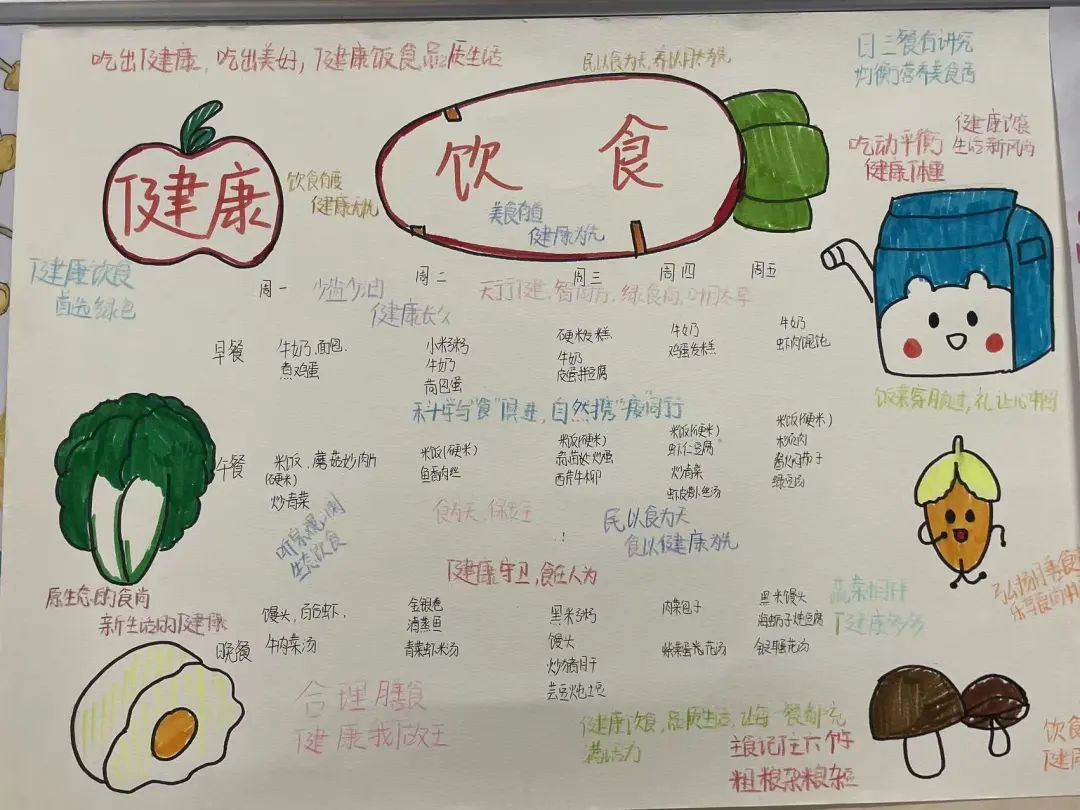 吃出健康，吃出美好，健康饭食品质生活
民以食为天，养以月夫为先
日三餐有讲究
均衡营养美食舌
吃动平衡
健康体重
健康饮食
生活新风尚
健康
饮食有度
健康无忧
饮 食
美食有道
健康为先
健康饮食
首选绿色
周一
周二
周三
周四
周五
少盐少油
健康长久
早餐
牛奶、面包、
煮鸡蛋
小米粥
牛奶
荷包蛋
硬米发糕
牛奶
皮蛋拌豆腐
牛奶
鸡蛋发糕
牛奶
虾肉馄饨
科学与“食”俱进，自然携“疫”同行
午餐
米饭、蘑菇炒肉片
(硬米)
炒青菜
米饭(硬米)
鱼香肉丝
米饭(硬米)
蒜苗炒鸡蛋
西芹牛柳
米饭(硬米)
虾仁豆腐
炒青菜
米饭(硬米)
绿豆汤
食为天、保为主
民以食为天
食以健康为先
生态饮食
健康守卫，食在人为
原生态的食尚
新生活的健康
晚餐
馒头、白合虾、
牛肉菜汤
金银卷
清蒸鱼
青菜虾米汤
黑米粥
馒头
炒猪肝
芸豆炖土豆
肉菜包子
紫菜蛋花汤
黑米馒头
海蛎子炖豆腐
银耳蛋花汤
蔬菜相伴
健康多多
合理膳食
健康我做主
健康饮食，品质生活，让每一餐都充
满活力
粗粮杂粮杂豆
饮食
健康